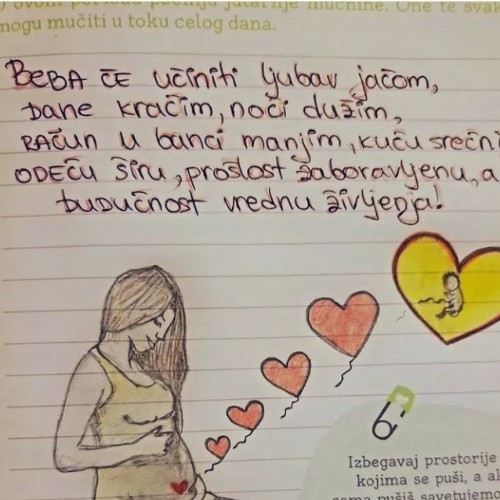 jutarnje mučnine. One te
mogu mučiti u toku celog dana.
BEBA ĆE UČINITI ljubav jačom,
DANE kraćim, noći dužim,
RAČUN u banci manjim, kuću srećni
ODEĆU ŠIRU, prošlost zaboravljenu, a
budućnost vrednu življenja!
Izbegavaj prostorije
kojima se puši, a
sama pušiš savetujemo